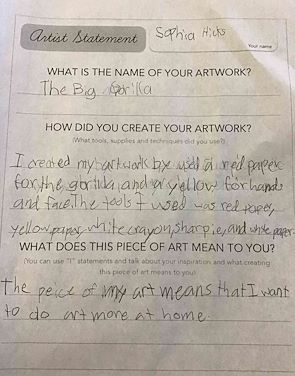 Artist Statement
Sophia Hicks
Your name
WHAT IS THE NAME OF YOUR ARTWORK?
The Big Gorilla
HOW DID YOU CREATE YOUR ARTWORK?
(What tools, supplies and techniques did you use?)
I created my artwork by used a red paper
for the gorilla and a yellow for hands
and face. The tools I used was red paper,
yellow paper, white crayon, sharpie, and white paper.
WHAT DOES THIS PIECE OF ART MEAN TO YOU?
(You can use "I" statements and talk about your inspiration and what creating
this piece of art means to you)
The peice of my art means that I want
to do art more at home.